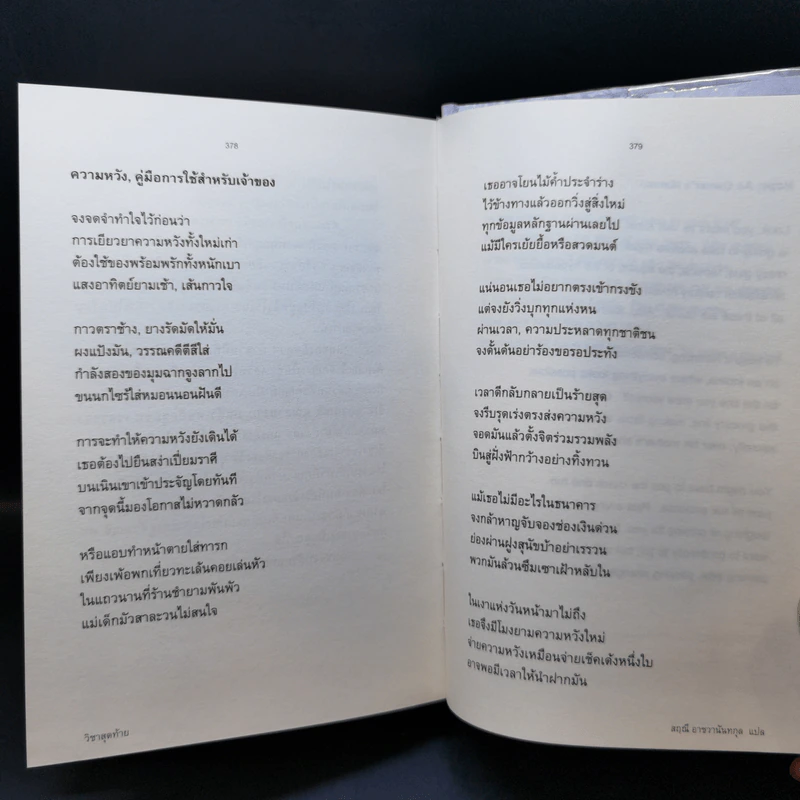 378
ความหวัง, คู่มือการใช้สำหรับเจ้าของ
จงจดจำทำใจไว้ก่อนว่า
การเยียวยาความหวังทั้งใหม่เก่า
ต้องใช้ของพร้อมพรักทั้งหนักเบา
แสงอาทิตย์ยามเช้า, เส้นกาวใจ
กาวตราช้าง, ยางรัดมัดให้มั่น
ผงแป้งมัน, วรรณคดีตีสีใส่
กำลังสองของมุมฉากจูงลากไป
ขนนกไซร้ใส่หมอนนอนฝันดี
การจะทำให้ความหวังยังเดินได้
เธอต้องไปยืนสง่าเปี่ยมราศี
บนเนินเขาเข้าประจัญโดยทันที
จากจุดนี้มองโอกาสไม่หวาดกลัว
หรือแอบทำหน้าตายใส่ทารก
เพียงเพ้อพกเที่ยวทะเล้นคอยเล่นหัว
ในแถวนานที่ร้านชำยามพันพัว
แม่เด็กมัวสาละวนไม่สนใจ
วิชาสุดท้าย
379
เธออาจโยนไม้ค้ำประจำร่าง
ไว้ข้างทางแล้วออกวิ่งสู่สิ่งใหม่
ทุกข้อมูลหลักฐานผ่านเลยไป
แม้มีใครเย้ยยื้อหรือสวดมนต์
แน่นอนเธอไม่อยากตรงเข้ากรงขัง
แต่จงยังวิ่งบุกทุกแห่งหน
ผ่านเวลา, ความประหลาดทุกชาติชน
จงดั้นด้นอย่าร้องขอรอประทัง
เวลาดีกลับกลายเป็นร้ายสุด
จงรีบรุดเร่งตรงส่งความหวัง
จอดมันแล้วตั้งจิตร่วมรวมพลัง
บินสู่ฝั่งฟ้ากว้างอย่างทิ้งทวน
แม้เธอไม่มีอะไรในธนาคาร
จงกล้าหาญจับจองช่องเงินด่วน
ย่องผ่านฝูงสุนัขบ้าอย่าเรรวน
พวกมันล้วนซึมเซาเฝ้าหลับใน
ในเงาแห่งวันหน้ามาไม่ถึง
เธอจึงมีโมงยามความหวังใหม่
จ่ายความหวังเหมือนจ่ายเช็คเด้งหนึ่งใบ
อาจพอมีเวลาให้นำฝากมัน
สฤณี อาชวานันทกุล แปล